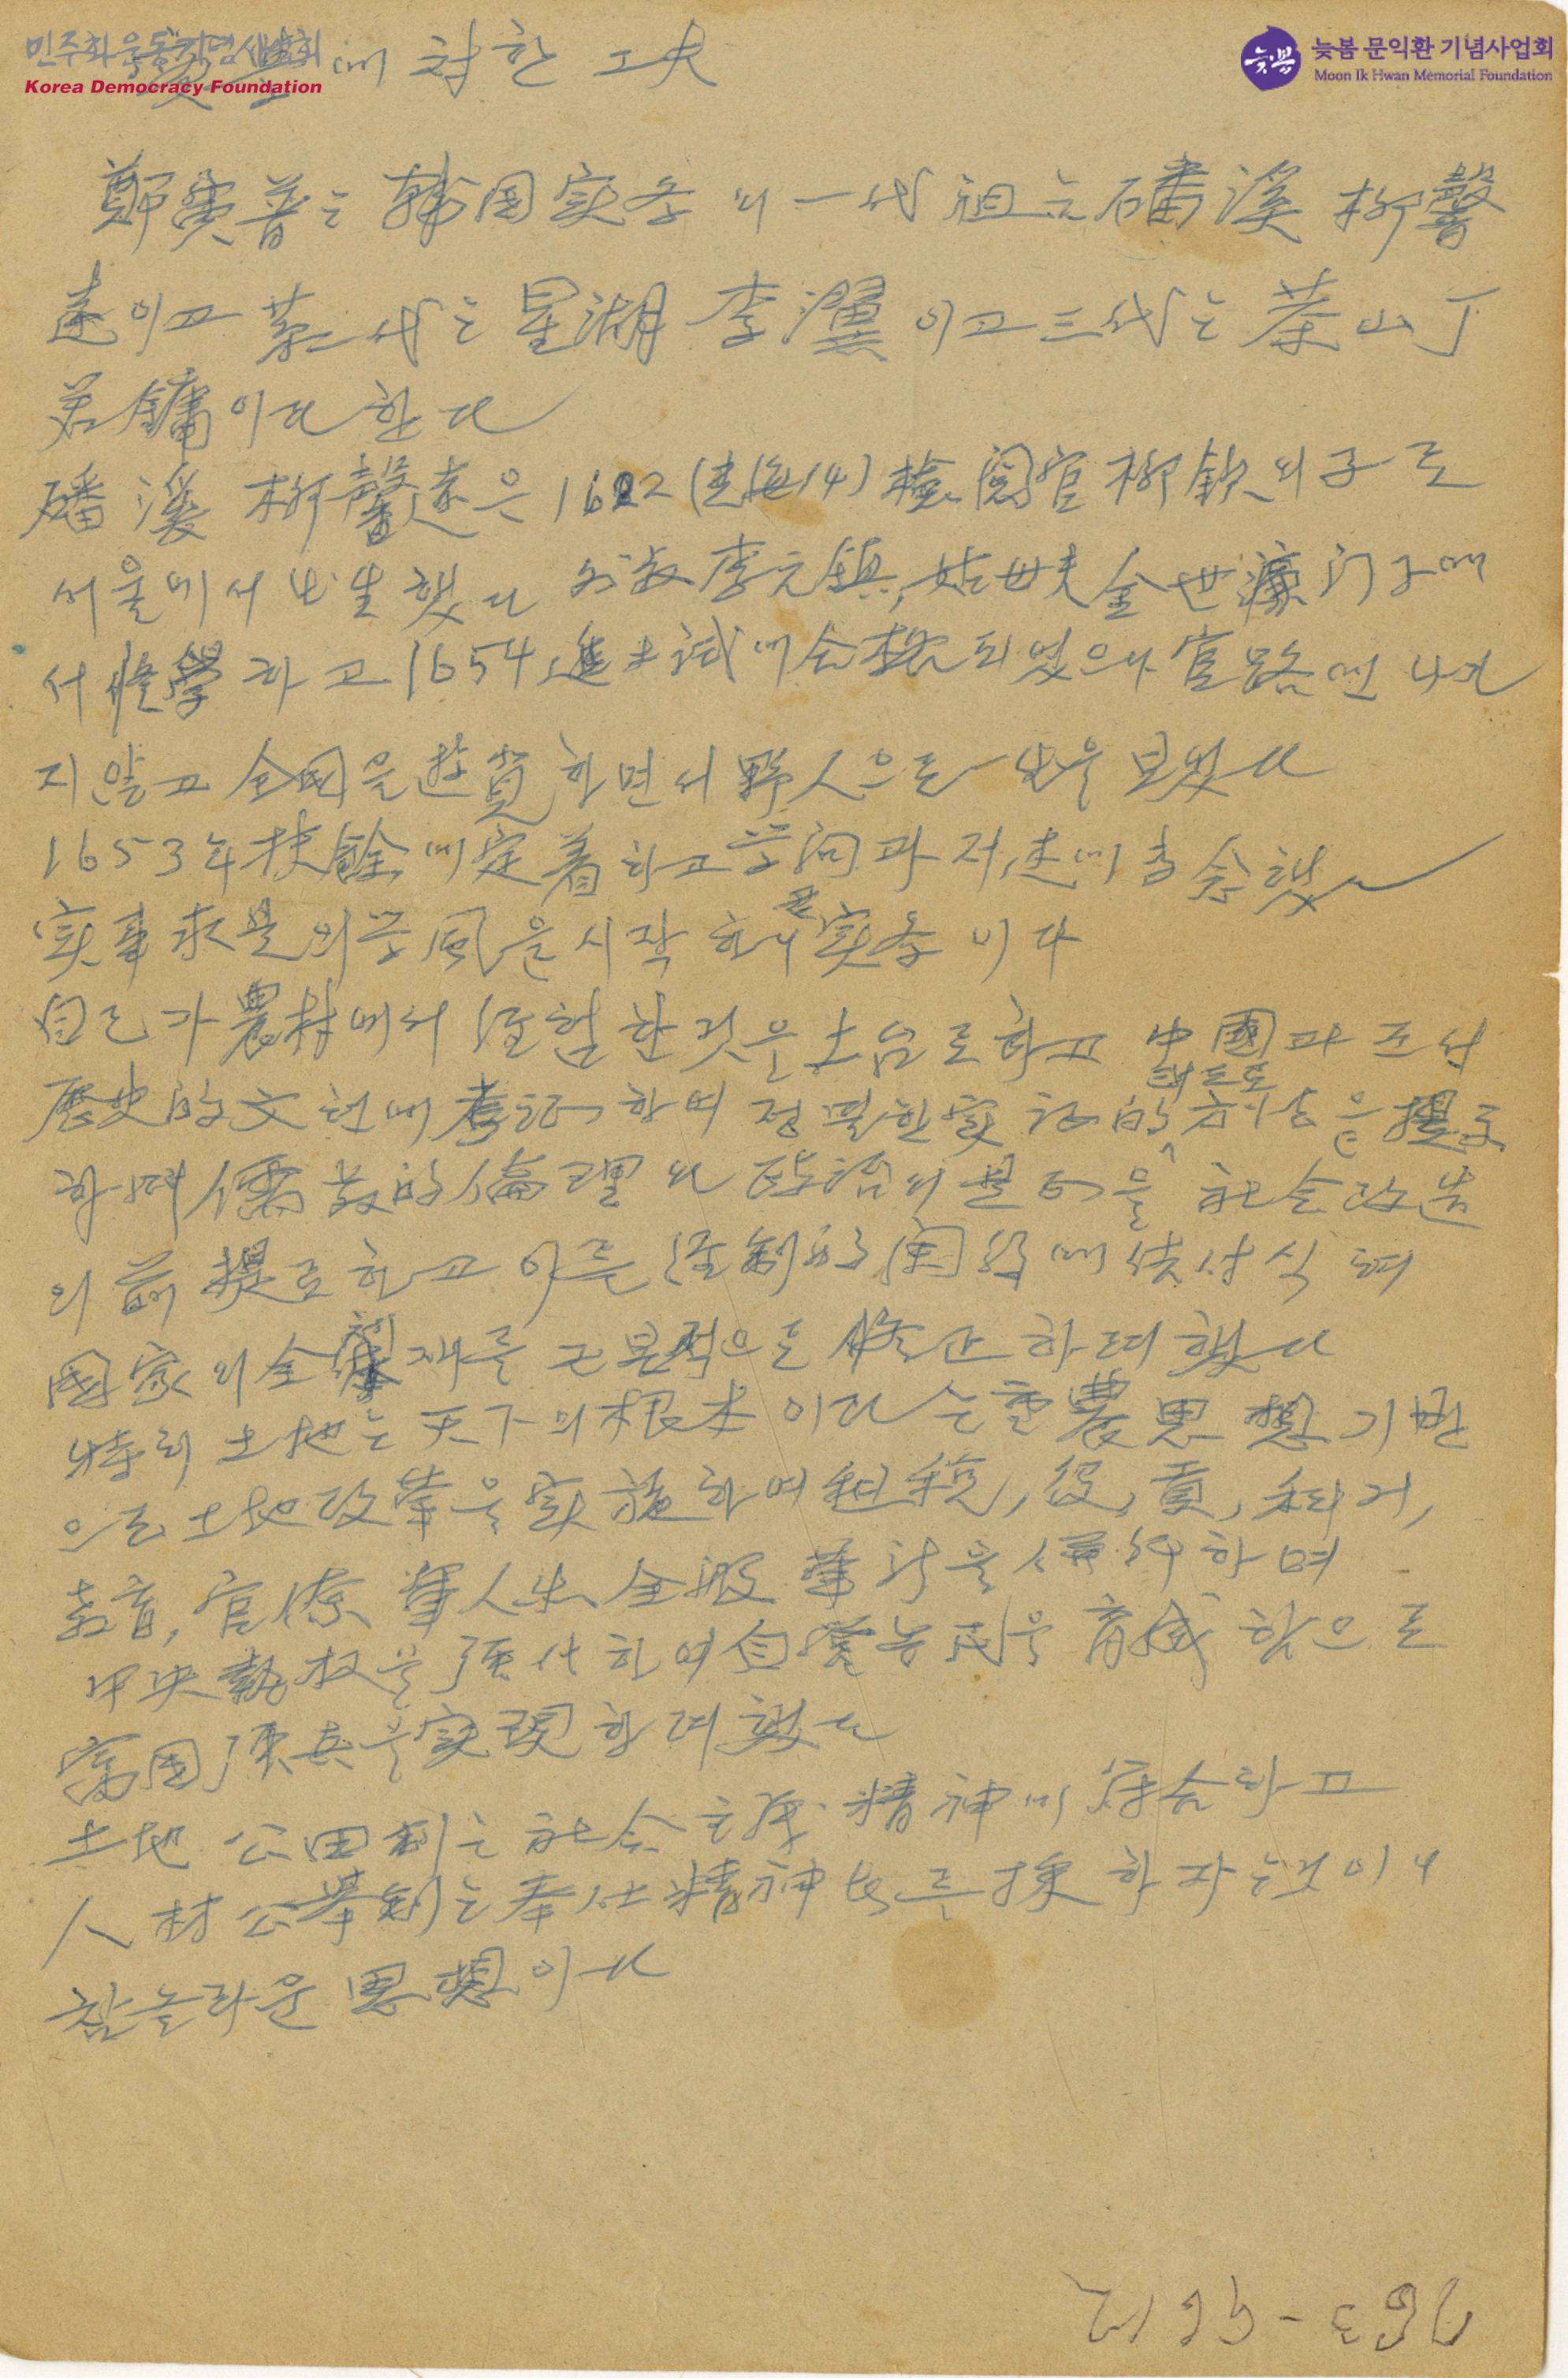 민주화운동기념사업회
Korea Democracy Foundation
늦봄
늦봄 문익환 기념사업회
Moon Ik Hwan Memorial Foundation
에 対한 工夫
鄭寅普는 韓国 実学의 一代祖는 磻溪 柳馨
遠이고 第二代는 星湖 李瀷이고 三代는 茶山 丁
若鏞이라 한다
磻溪 柳馨遠은 1622 (光海14) 檢閱官 柳欽의 子로
서울에서 出生했다 外叔 李元鎭, 姑母夫 金世濂 门下에
서 修學하고 1654 進士試에 合格되였으나 官路엔 나가
지 않고 全國을 遊覽하면서 野人으로 一生을 보냈다
1653年 扶餘에 定着하고 学问과 저述에 専念했다
実事求是의 学風을 시작하니 実学이다
自己가 農村에서 经험한 것을 土台로 하고 中國과 조선
歷史的 文헌에 考证하여 정밀한 実证的 方法을 提示
하며 儒教的 倫理나 政治의 是正을 社会改造
의 前提로 하고 이를 经制的 에 结付시켜
國家의 全体제를 근본적으로 修正하려 했다
特히 土地는 天下의 根本이라는 重農思想 기반
으로 土地改革을 実施하여 租税, 役, 貢, 科거,
教育, 官僚 軍人 全般 革新을 하며
中央執权을 强化하여 自營농民을 育成함으로
富国强兵을 実現하려 했다
土地 公田制는 社会主義 精神에 符合하고
人材 公擧制는 奉仕精神 하자는 것이니
참 놀라운 思想이다